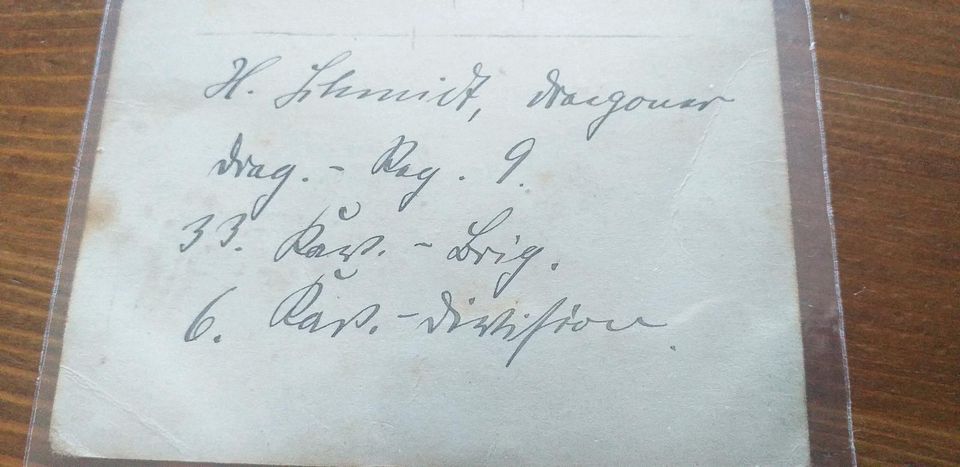 H. Schmidt, Dragoner
Drag. - Reg. 9.
33. Kav. - Brig.
6. Kav. - Division.